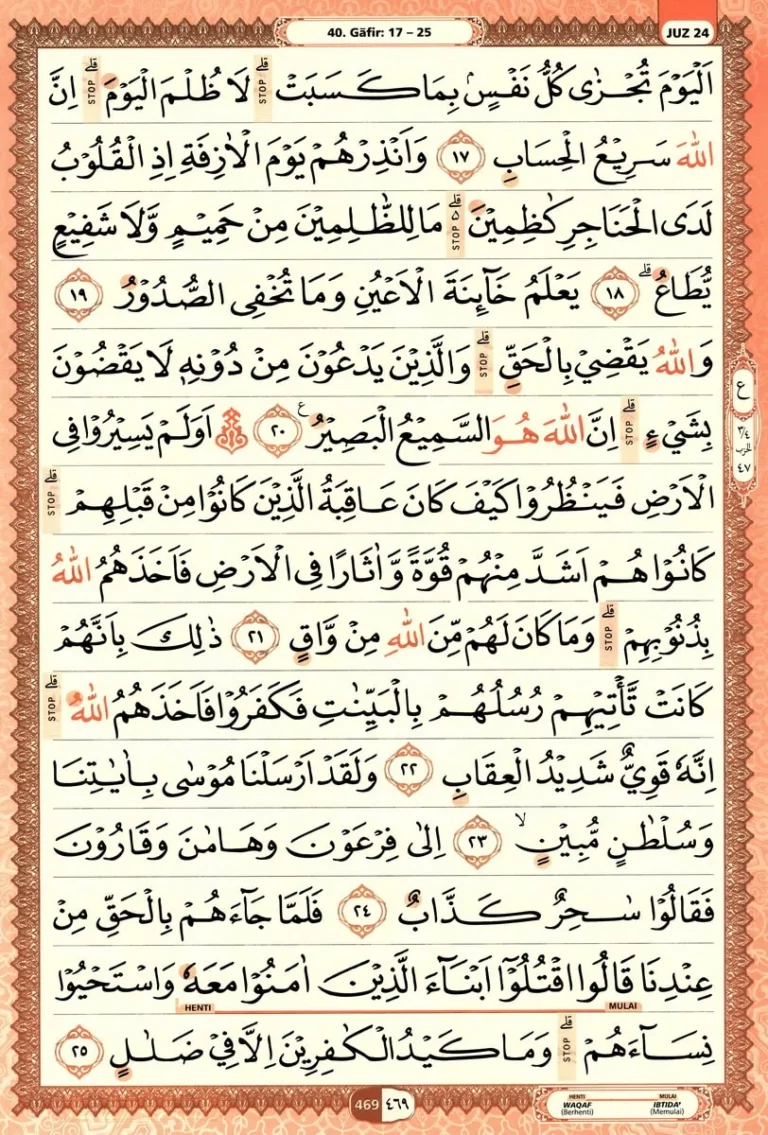 40. Gāfir: 17 – 25
JUZ 24
اَلْيَوْمَ تُجْزٰى كُلُّ نَفْسٍۢ بِمَا كَسَبَتْ ۗ لَا ظُلْمَ الْيَوْمَ ۗ اِنَّ
STOP STOP
اللّٰهَ سَرِيْعُ الْحِسَابِ ١٧ وَاَنْذِرْهُمْ يَوْمَ الْاٰزِفَةِ اِذِ الْقُلُوْبُ
لَدَى الْحَنَاجِرِ كٰظِمِيْنَ ۗ ەۗ مَا لِلظّٰلِمِيْنَ مِنْ حَمِيْمٍ وَّلَا شَفِيْعٍ
STOP
يُّطَاعُ ۗ ١٨ يَعْلَمُ خَاۤىِٕنَةَ الْاَعْيُنِ وَمَا تُخْفِى الصُّدُوْرُ ١٩
وَاللّٰهُ يَقْضِيْ بِالْحَقِّ ۗ وَالَّذِيْنَ يَدْعُوْنَ مِنْ دُوْنِهٖ لَا يَقْضُوْنَ
STOP
بِشَيْءٍ ۗ اِنَّ اللّٰهَ هُوَ السَّمِيْعُ الْبَصِيْرُ ࣖ ٢٠ ۞ اَوَلَمْ يَسِيْرُوْا فِى
STOP
الْاَرْضِ فَيَنْظُرُوْا كَيْفَ كَانَ عَاقِبَةُ الَّذِيْنَ كَانُوْا مِنْ قَبْلِهِمْ ۗ
STOP
كَانُوْا هُمْ اَشَدَّ مِنْهُمْ قُوَّةً وَّاٰثَارًا فِى الْاَرْضِ فَاَخَذَهُمُ اللّٰهُ
بِذُنُوْبِهِمْ ۗ وَمَا كَانَ لَهُمْ مِّنَ اللّٰهِ مِنْ وَّاقٍ ٢١ ذٰلِكَ بِاَنَّهُمْ
STOP
كَانَتْ تَّأْتِيْهِمْ رُسُلُهُمْ بِالْبَيِّنٰتِ فَكَفَرُوْا فَاَخَذَهُمُ اللّٰهُ ۗ
STOP
اِنَّهٗ قَوِيٌّ شَدِيْدُ الْعِقَابِ ٢٢ وَلَقَدْ اَرْسَلْنَا مُوْسٰى بِاٰيٰتِنَا
وَسُلْطٰنٍ مُّبِيْنٍ ۙ ٢٣ اِلٰى فِرْعَوْنَ وَهَامٰنَ وَقَارُوْنَ
فَقَالُوْا سٰحِرٌ كَذَّابٌ ٢٤ فَلَمَّا جَاۤءَهُمْ بِالْحَقِّ مِنْ
عِنْدِنَا قَالُوا اقْتُلُوْٓا اَبْنَاۤءَ الَّذِيْنَ اٰمَنُوْا مَعَهٗ وَاسْتَحْيُوْا
MULAI HENTI
نِسَاۤءَهُمْ ۗ وَمَا كَيْدُ الْكٰفِرِيْنَ اِلَّا فِيْ ضَلٰلٍ ٢٥
STOP
ع
٣/٤
الحزب
٤٧
469 ٤٦٩
HENTI MULAI
WAQAF IBTIDA'
(Berhenti) (Memulai)